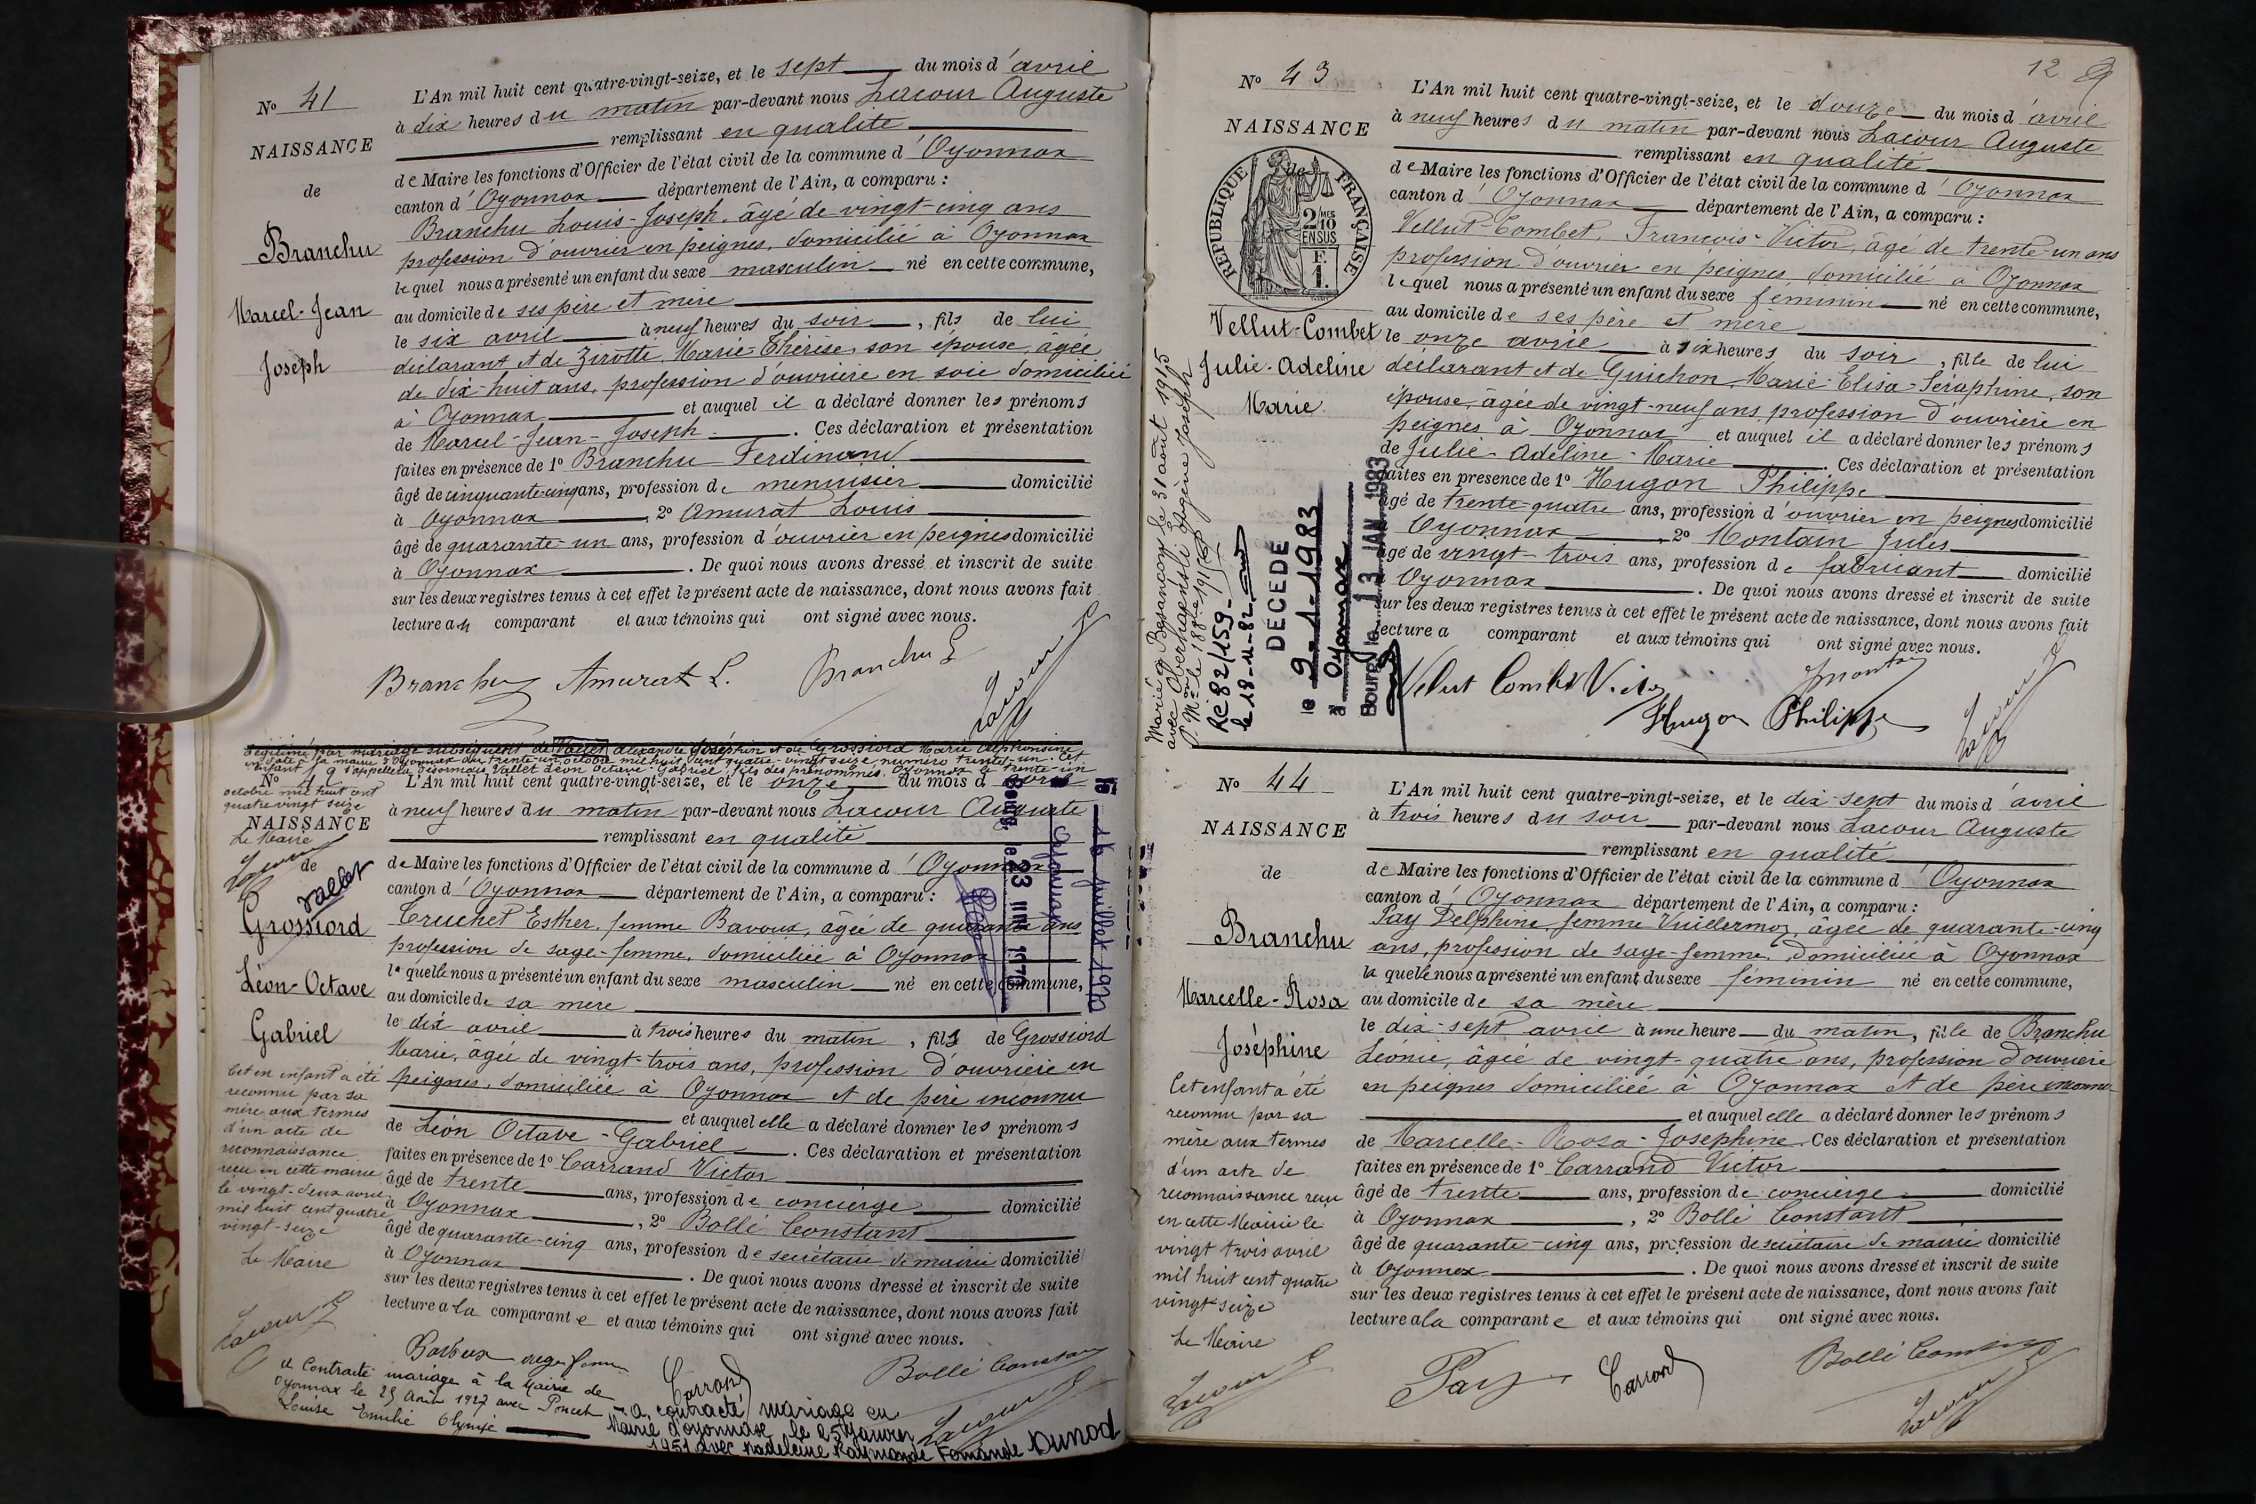 N° 41
NAISSANCE
de
Branchu
Marcel-Jean
Joseph
L'An mil huit cent quatre-vingt-seize, et le sept du mois d'avril
à dix heures du matin par-devant nous Lacour Auguste
remplissant en qualité
de Maire les fonctions d'Officier de l'état civil de la commune d'Oyonnax
canton d'Oyonnax département de l'Ain, a comparu :
Branchu Louis-Joseph, âgé de vingt-cinq ans
profession d'ouvrier en peignes, domicilié à Oyonnax
lequel nous a présenté un enfant du sexe masculin né en cette commune,
au domicile de ses père et mère
le six avril à neuf heures du soir, fils de lui
déclarant et de Zirotte Marie-Thérèse, son épouse, âgée
de dix-huit ans, profession d'ouvrière en soie domiciliée
à Oyonnax et auquel il a déclaré donner les prénoms
de Marcel-Jean-Joseph. Ces déclaration et présentation
faites en présence de 1° Branchu Ferdinand
âgé de cinquante-cinq ans, profession de menuisier domicilié
à Oyonnax, 2° Amurat Louis
âgé de quarante-un ans, profession d'ouvrier en peignes domicilié
à Oyonnax. De quoi nous avons dressé et inscrit de suite
sur les deux registres tenus à cet effet le présent acte de naissance, dont nous avons fait
lecture au comparant et aux témoins qui ont signé avec nous.
Branchu Amurat L. Branchu
Lacour
légitimé par mariage subséquent de Vallet Alexandre Joséphin et de Grossiord Marie Alphonsine
en date à la mairie d'Oyonnax du trente-un octobre mil huit cent quatre-vingt seize, numéro trente-un. Cet
enfant s'appellera désormais Vallet Léon Octave-Gabriel, fils des prénommés. Oyonnax le trente-un
octobre mil huit cent
quatre vingt seize
Le Maire
Lacour
N°
NAISSANCE
de
Vallet
Grossiord
Léon-Octave
Gabriel
Cet enfant a été
reconnu par sa
mère aux termes
d'un acte de
reconnaissance
reçu en cette mairie
le vingt-deux avril
mil huit cent quatre
vingt-seize
Le Maire
Lacour
L'An mil huit cent quatre-vingt-seize, et le onze du mois d'avril
à neuf heures du matin par-devant nous Lacour Auguste
remplissant en qualité
de Maire les fonctions d'Officier de l'état civil de la commune d'Oyonnax
canton d'Oyonnax département de l'Ain, a comparu :
Cruchet Esther, femme Bavoux, âgée de quarante ans
profession de sage-femme, domiciliée à Oyonnax
laquelle nous a présenté un enfant du sexe masculin né en cette commune,
au domicile de sa mère
le dix avril à trois heures du matin, fils de Grossiord
Marie, âgée de vingt-trois ans, profession d'ouvrière en
peignes, domiciliée à Oyonnax et de père inconnu
et auquel elle a déclaré donner les prénoms
de Léon Octave-Gabriel. Ces déclaration et présentation
faites en présence de 1° Carrand Victor
âgé de trente ans, profession de concierge domicilié
à Oyonnax, 2° Bollé Constant
âgé de quarante-cinq ans, profession de secrétaire de mairie domicilié
à Oyonnax. De quoi nous avons dressé et inscrit de suite
sur les deux registres tenus à cet effet le présent acte de naissance, dont nous avons fait
lecture à la comparante et aux témoins qui ont signé avec nous.
16 juillet 1970
Bourg, le 23
1970
Bavoux sage femme
Carrand
Bollé Constant
Lacour
a Contracté mariage à la Mairie de
Oyonnax le 25 Août 1927 avec Poncet
Louise Emilie Olympe
a contracté mariage en
Mairie d'Oyonnax le 25 Janvier
1951 avec Madeleine Raymonde Fernande Dunod
12
N° 43
NAISSANCE
de
RÉPUBLIQUE FRANÇAISE
2/10 MES
EN SUS
F.
1.
Vellut-Combet
Julie-Adeline
Marie
L'An mil huit cent quatre-vingt-seize, et le douze du mois d'avril
à neuf heures du matin par-devant nous Lacour Auguste
remplissant en qualité
de Maire les fonctions d'Officier de l'état civil de la commune d'Oyonnax
canton d'Oyonnax département de l'Ain, a comparu :
Vellut-Combet, François-Victor, âgé de trente-un ans
profession d'ouvrier en peignes domicilié à Oyonnax
lequel nous a présenté un enfant du sexe féminin né en cette commune,
au domicile de ses père et mère
le onze avril à six heures du soir, fille de lui
déclarant et de Guichon Marie-Elisa-Séraphine, son
épouse, âgée de vingt-neuf ans, profession d'ouvrière en
peignes à Oyonnax et auquel il a déclaré donner les prénoms
de Julie-Adeline-Marie. Ces déclaration et présentation
faites en présence de 1° Hugon Philippe
âgé de trente-quatre ans, profession d'ouvrier en peignes domicilié
Oyonnax, 2° Montain Jules
âgé de vingt-trois ans, profession de fabricant domicilié
Oyonnax. De quoi nous avons dressé et inscrit de suite
sur les deux registres tenus à cet effet le présent acte de naissance, dont nous avons fait
lecture a comparant et aux témoins qui ont signé avec nous.
Mariée à Besançon le 31 août 1915
avec Eugène Joseph
RC 82/159
le 18-11-82
DÉCÉDÉ
le 9-1-1983
à Oyonnax
Bourg, le 13 JAN. 1983
Velut Combet Victor
Hugon Philippe
Lacour
N° 44
NAISSANCE
de
Branchu
Marcelle-Rosa
Joséphine
Cet enfant a été
reconnu par sa
mère aux termes
d'un acte de
reconnaissance reçu
en cette Mairie le
vingt trois avril
mil huit cent quatre
vingt-seize
Le Maire
Lacour
L'An mil huit cent quatre-vingt-seize, et le dix-sept du mois d'avril
à trois heures du soir par-devant nous Lacour Auguste
remplissant en qualité
de Maire les fonctions d'Officier de l'état civil de la commune d'Oyonnax
canton d'Oyonnax département de l'Ain, a comparu :
Pay Delphine, femme Vuillermoz, âgée de quarante-cinq
ans, profession de sage-femme, domiciliée à Oyonnax
laquelle nous a présenté un enfant du sexe féminin né en cette commune,
au domicile de sa mère
le dix-sept avril à une heure du matin, fille de Branchu
Léonie, âgée de vingt-quatre ans, profession d'ouvrière
en peignes domiciliée à Oyonnax et de père inconnu
et auquel elle a déclaré donner les prénoms
de Marcelle-Rosa-Joséphine. Ces déclaration et présentation
faites en présence de 1° Carrand Victor
âgé de trente ans, profession de concierge domicilié
à Oyonnax, 2° Bollé Constant
âgé de quarante-cinq ans, profession de secrétaire de mairie domicilié
à Oyonnax. De quoi nous avons dressé et inscrit de suite
sur les deux registres tenus à cet effet le présent acte de naissance, dont nous avons fait
lecture à la comparante et aux témoins qui ont signé avec nous.
Pay
Carrand
Bollé Constant
Lacour